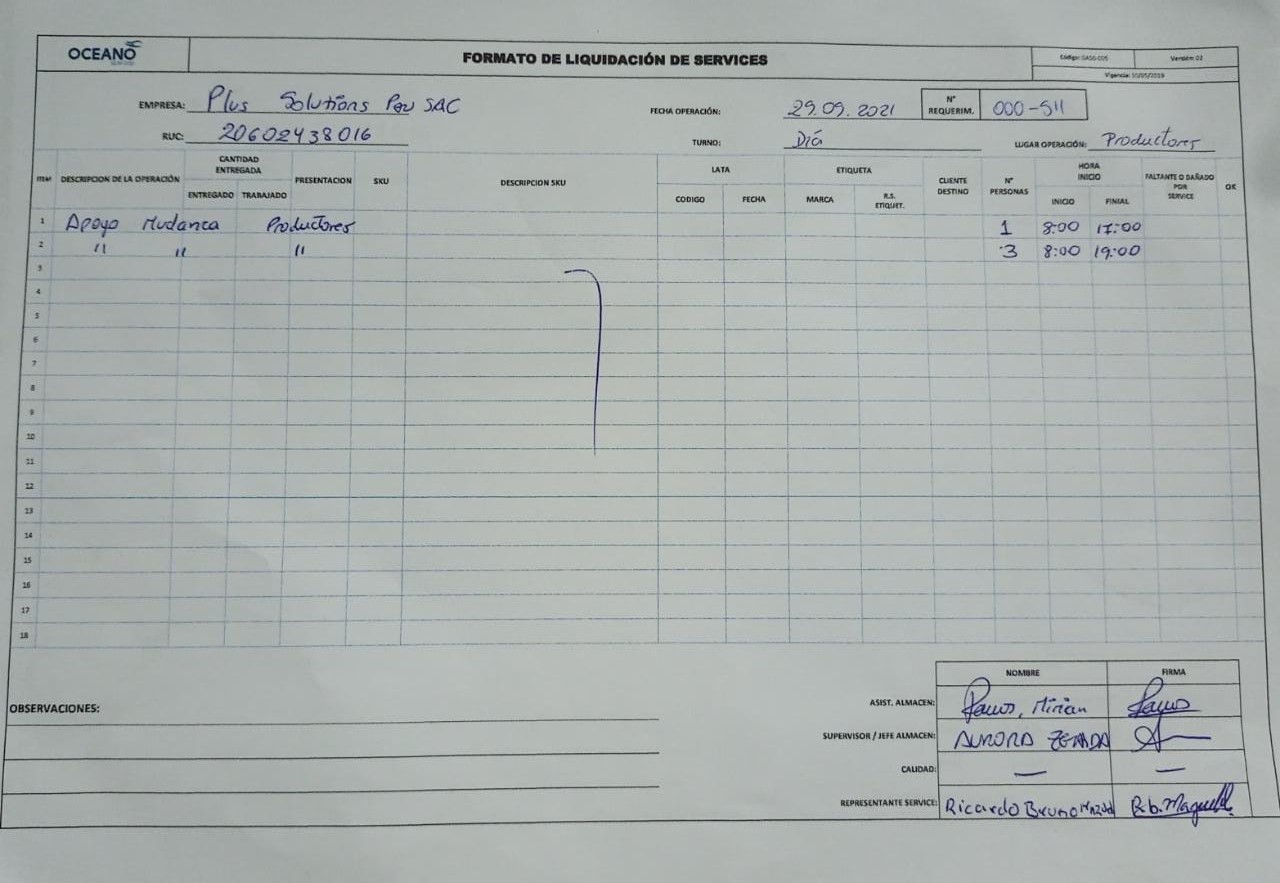 OCEANO
FORMATO DE LIQUIDACIÓN DE SERVICES
Código: SASG-005 Versión: 02
Vigencia: 10/05/2019
EMPRESA: Plus Solutions Per SAC
FECHA OPERACIÓN: 29.09.2021
N° REQUERIM. 000-511
RUC: 20602438016
TURNO: Día
LUGAR OPERACIÓN: Productores
ITEM DESCRIPCION DE LA OPERACIÓN CANTIDAD ENTREGADA PRESENTACION SKU DESCRIPCION SKU LATA ETIQUETA CLIENTE DESTINO N° PERSONAS HORA INICIO FALTANTE O DAÑADO POR SERVICE OK
ENTREGADO TRABAJADO CODIGO FECHA MARCA R.S. ETIQUET. INICIO FINIAL
1 Apoyo Mudanca Productores 1 8:00 17:00
2 " " " 3 8:00 19:00
3
4
5
6
7
8
9
10
11
12
13
14
15
16
17
18
NOMBRE FIRMA
OBSERVACIONES:
ASIST. ALMACEN: Ramos, Mirian
SUPERVISOR / JEFE ALMACEN: AURORA
CALIDAD: — —
REPRESENTANTE SERVICE: Ricardo Bruno